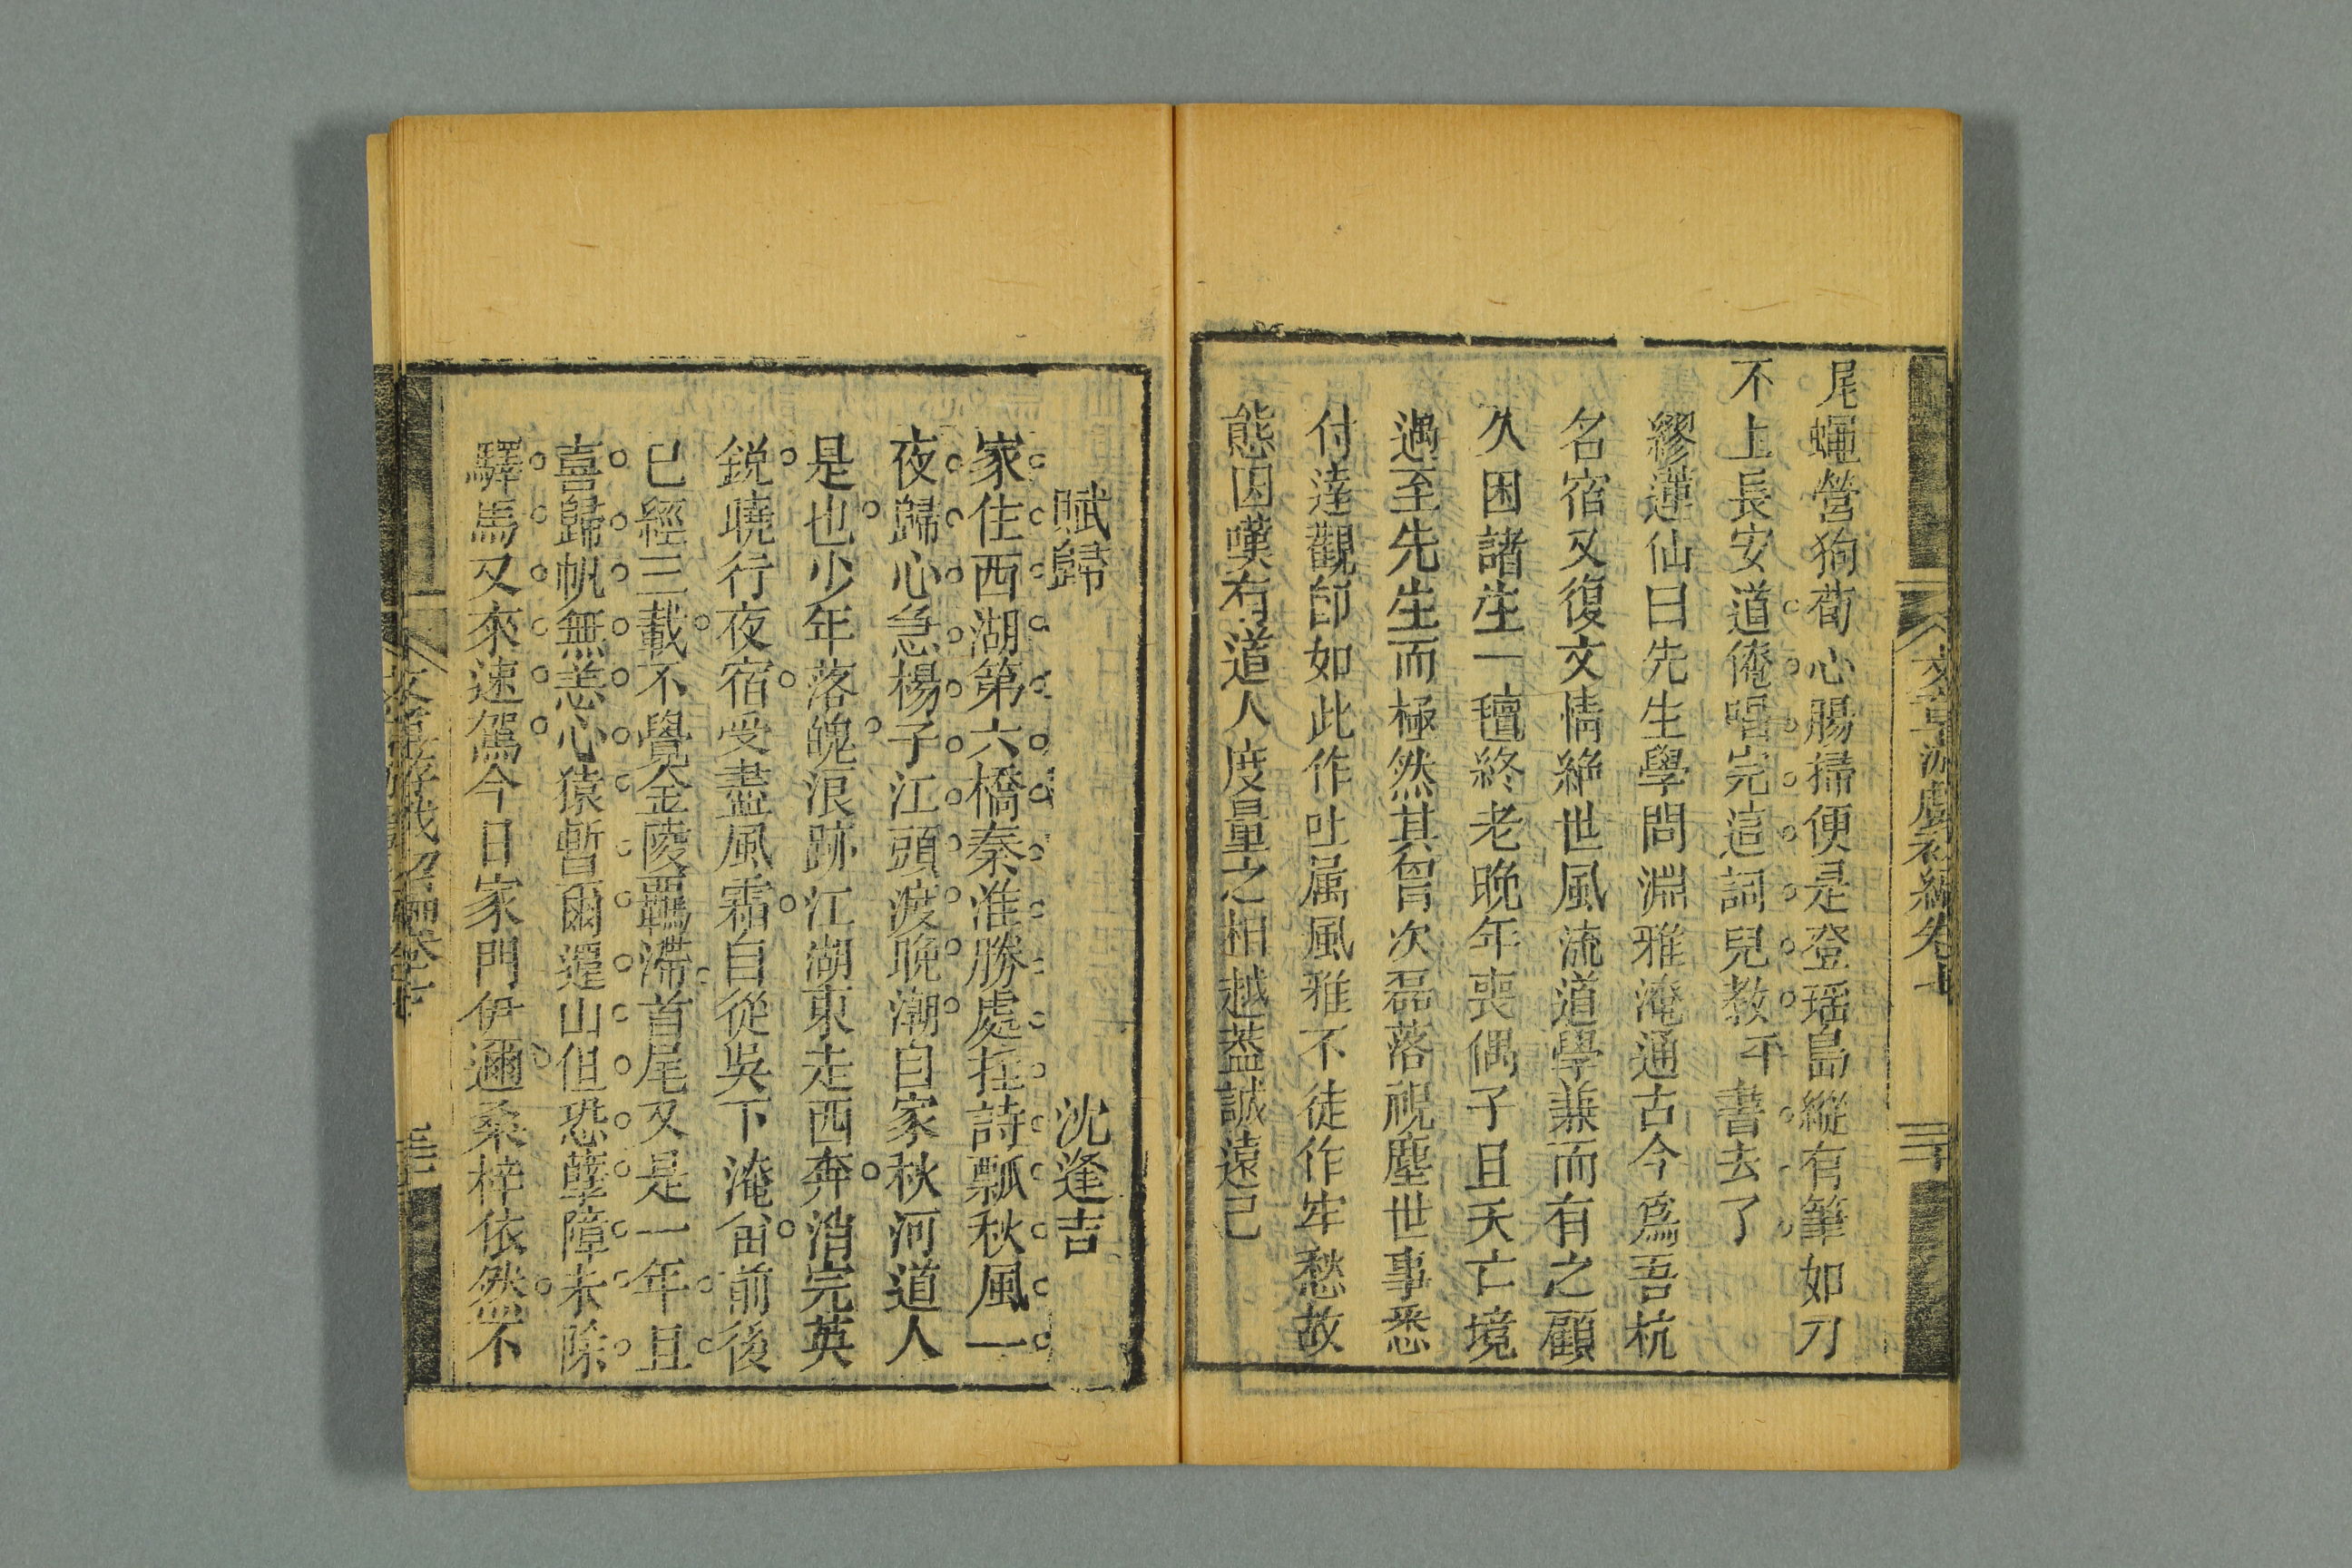 文章游戲初編卷七
三十
尾蠅營狗苟心腸掃便是登瑤島縱有筆如刀
不上長安道俺唱完這詞兒教平書去了
繆蓮仙曰先生學問淵雅淹通古今爲吾杭
名宿又復文情絶世風流道學兼而有之顧
久困諸生一氊終老晚年喪偶子且夭亡境
遇至先生而極然其胷次磊落視塵世事悉
付達觀卽如此作吐属風雅不徒作牢愁故
態因嘆有道人度量之相越葢誠遠已
賦歸 沈逢吉
家住西湖第六橋秦淮勝處挂詩瓢秋風一
夜歸心急楊子江頭渡晚潮自家秋河道人
是也少年落魄浪跡江湖東走西奔消完英
鋭曉行夜宿受盡風霜自從吳下淹留前後
已經三載不覺金陵羈滯首尾又是一年且
喜歸帆無恙心猿暫爾還山但恐孽障未除
驛馬又來速駕今日家門伊邇桑梓依然不
文章游戲初編卷七
三十一